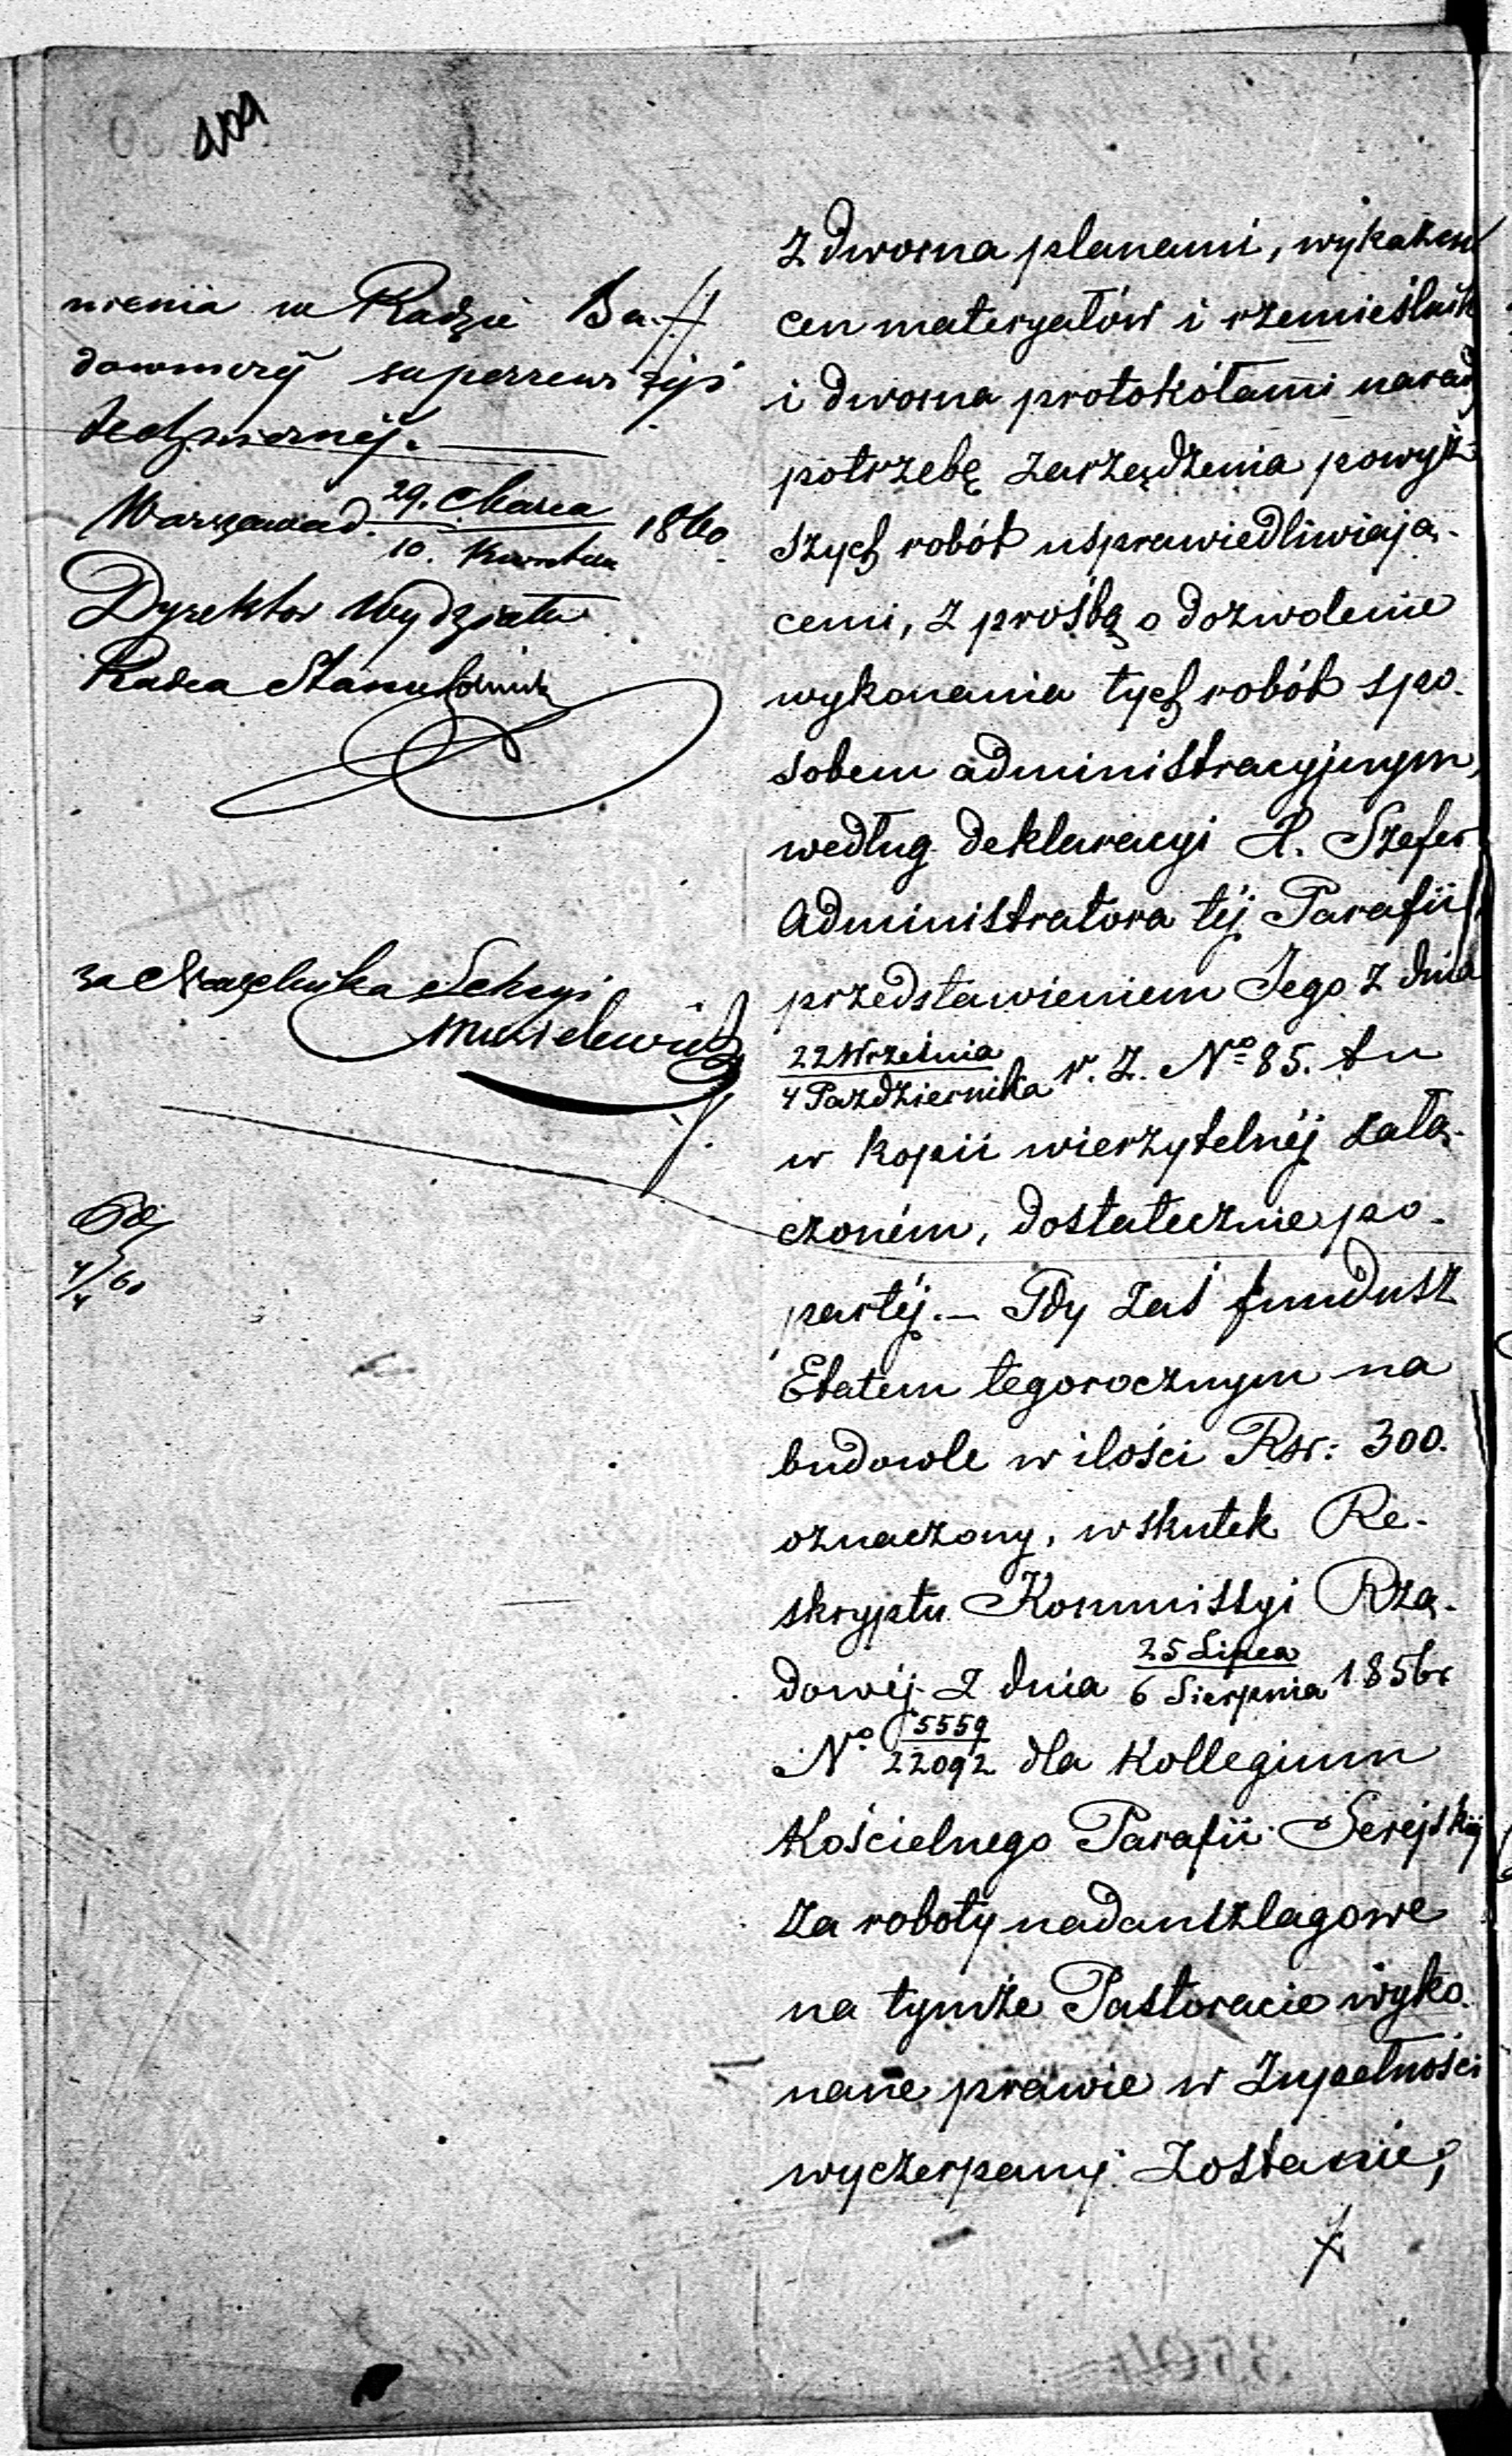 109
nienia w Radzie Bu-
downiczéj superrewizyi
technicznéj.
Warszawa d. 29. Marca / 10. Kwietnia 1860.
Dyrektor Wydziału
Radca Stanu
za Naczelnika Sekcyi
4/4 60
z dwoma planami, wykazem
cen materyałów i rzemieślnik
i dwoma protokółami narad
potrzebę zarządzenia powyż-
szych robót usprawiedliwiają-
cemi, z prośbą o dozwolenie
wykonania tych robót spo-
sobem administracyjnym,
według deklaracyi X. Szefer
Administratora téj Parafii,
przedstawieniem Jego z dnia
22 Września / 4 Października r. z. No 85. tu
w kopii wierzytelnéj załą-
czoném, dostatecznie po-
partéj. – Gdy zaś fundusz
Etatem tegorocznym na
budowle w ilości Rsr: 300.
oznaczony, wskutek Re-
skryptu Kommissyi Rzą-
dowéj z dnia 25 Lipca / 6 Sierpnia 1856r
No 5559 / 22092 dla Kollegium
Kościelnego Parafii Serejskiéj
za roboty nadanszlagowe
na tymże Pastoracie wyko-
nane prawie w zupełności
wyczerpany zostanie,